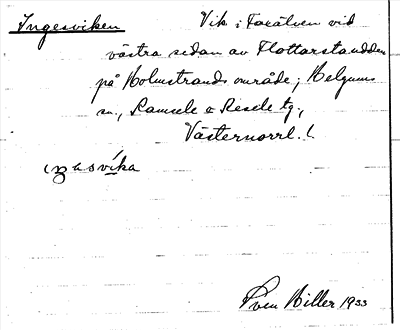 Ingesviken Vik i Faxälven vid
västra sidan av Flottarstaudden
på Holmstrands område; Helgums
sn., Ramsele o Resele tg.,
Västernorrl. l.
svika
Sven Hiller 1933